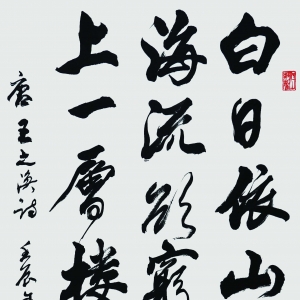 白日依山
海流欲窮
上一層楼
唐王之渙詩
壬辰年